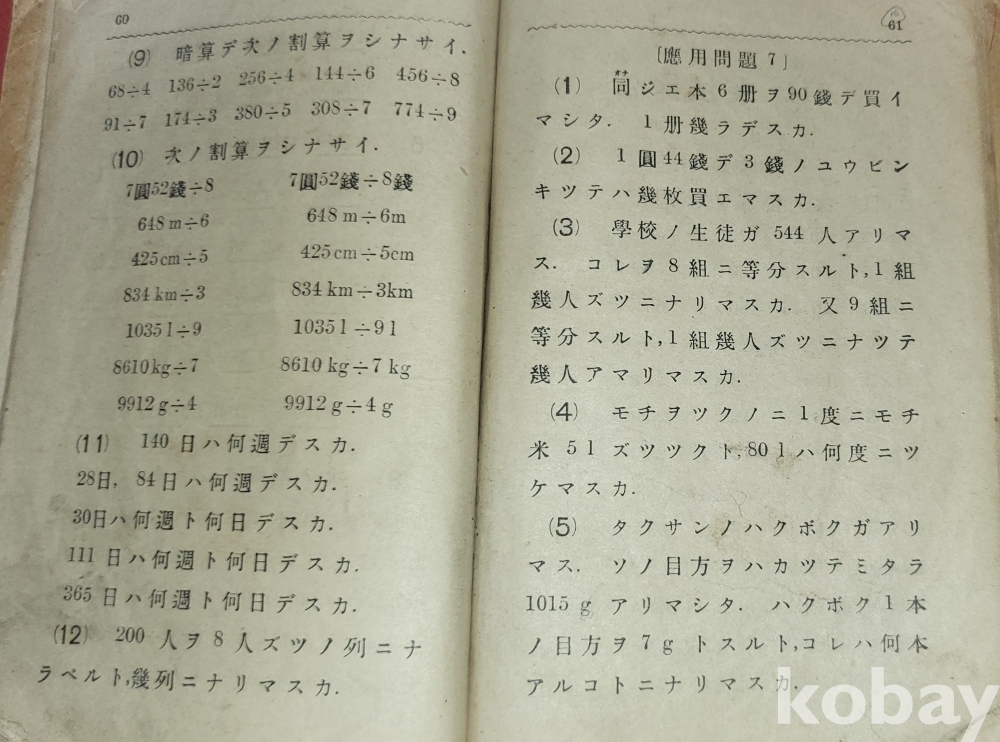 60
(9) 暗算デ次ノ割算ヲシナサイ.
68÷4 136÷2 256÷4 144÷6 456÷8
91÷7 174÷3 380÷5 308÷7 774÷9
(10) 次ノ割算ヲシナサイ.
7圓52錢÷8 7圓52錢÷8錢
648m÷6 648m÷6m
425cm÷5 425cm÷5cm
834km÷3 834km÷3km
1035l÷9 1035l÷9l
8610kg÷7 8610kg÷7kg
9912g÷4 9912g÷4g
(11) 140日ハ何週デスカ.
28日, 84日ハ何週デスカ.
30日ハ何週ト何日デスカ.
111日ハ何週ト何日デスカ.
365日ハ何週ト何日デスカ.
(12) 200人ヲ8人ズツノ列ニナ
ラベルト,幾列ニナリマスカ.
61
〔應用問題7〕
オナ
(1) 同ジエ本6册ヲ90錢デ買イ
マシタ. 1册幾ラデスカ.
(2) 1圓44錢デ3錢ノユウビン
キツテハ幾枚買エマスカ.
(3) 學校ノ生徒ガ544人アリマ
ス. コレヲ8組ニ等分スルト,1組
幾人ズツニナリマスカ. 又9組ニ
等分スルト,1組幾人ズツニナツテ
幾人アマリマスカ.
(4) モチヲツクノニ1度ニモチ
米5lズツツクト,80lハ何度ニツ
ケマスカ.
(5) タクサンノハクボクガアリ
マス. ソノ目方ヲハカツテミタラ
1015gアリマシタ. ハクボク1本
ノ目方ヲ7gトスルト,コレハ何本
アルコトニナリマスカ.
kobay